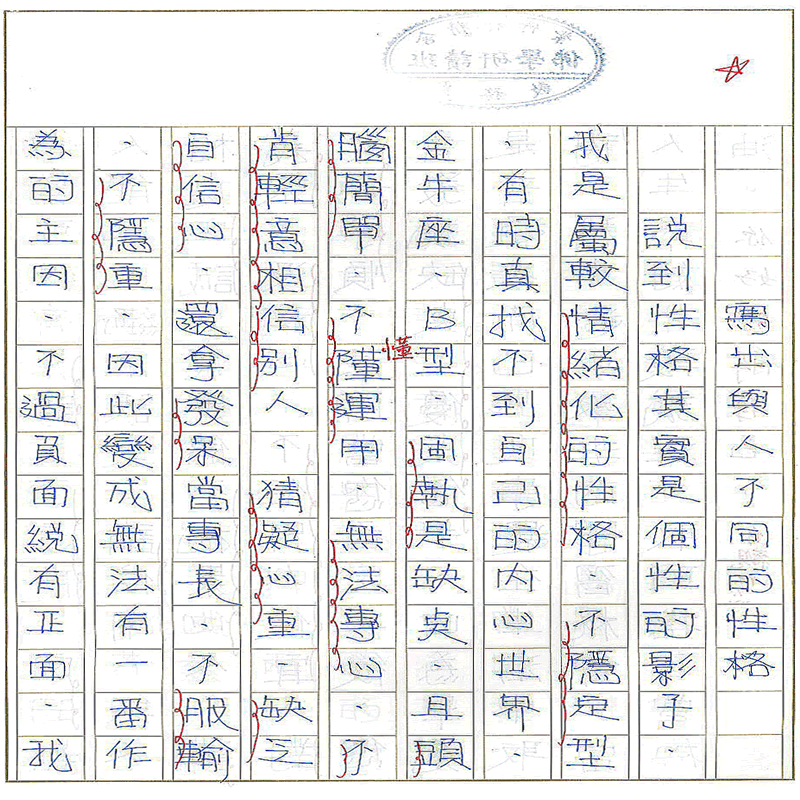 寫出與人不同的性格
說到性格其實是個性的影子.
我是屬較情緒化的性格.不隱定型
.有時真找不到自己的內心世界.
金牛座.B型.固執是缺奌.且頭
腦簡單.不懂運用.無法專心.不
肯輕意相信別人.猜疑心重.缺乏
自信心.還拿發呆當專長.不服輸
.不隱重.因此變成無法有一番作
為的主因.不過負面有正面.我
佛學研讀班